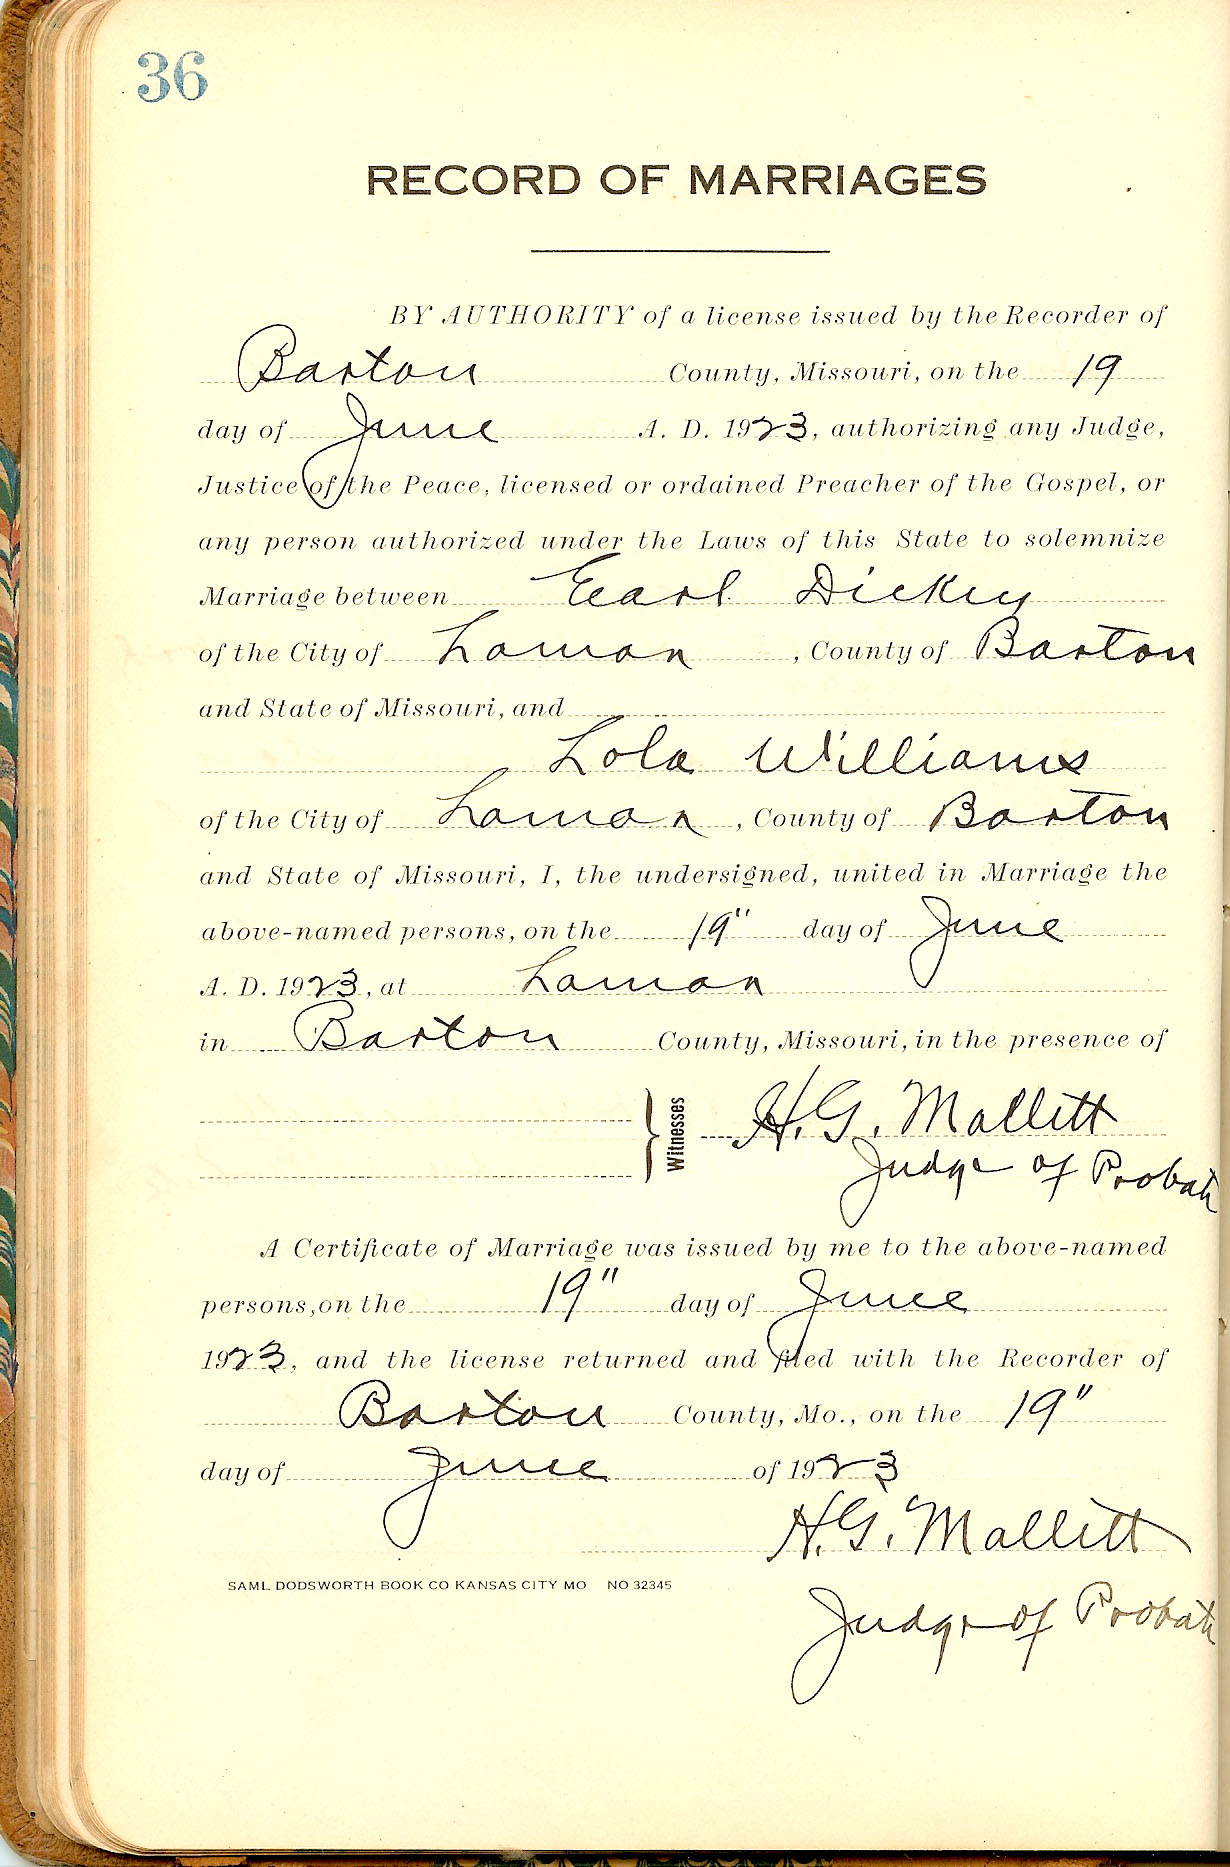 36
RECORD OF MARRIAGES
BY AUTHORITY of a license issued by the Recorder of
Barton County, Missouri, on the 19
day of June A. D. 1923, authorizing any Judge,
Justice of the Peace, licensed or ordained Preacher of the Gospel, or
any person authorized under the Laws of this State to solemnize
Marriage between Earl Dickey
of the City of Lamar, County of Barton
and State of Missouri, and
Lola Williams
of the City of Lamar, County of Barton
and State of Missouri, I, the undersigned, united in Marriage the
above-named persons, on the 19" day of June
A. D. 1923, at Lamar
in Barton County, Missouri, in the presence of
Witnesses H. G. Mallitt
Judge of Probate
A Certificate of Marriage was issued by me to the above-named
persons, on the 19" day of June
1923, and the license returned and filed with the Recorder of
Barton County, Mo., on the 19"
day of June of 1923
H. G. Mallitt
SAML DODSWORTH BOOK CO KANSAS CITY MO NO 32345
Judge of Probate